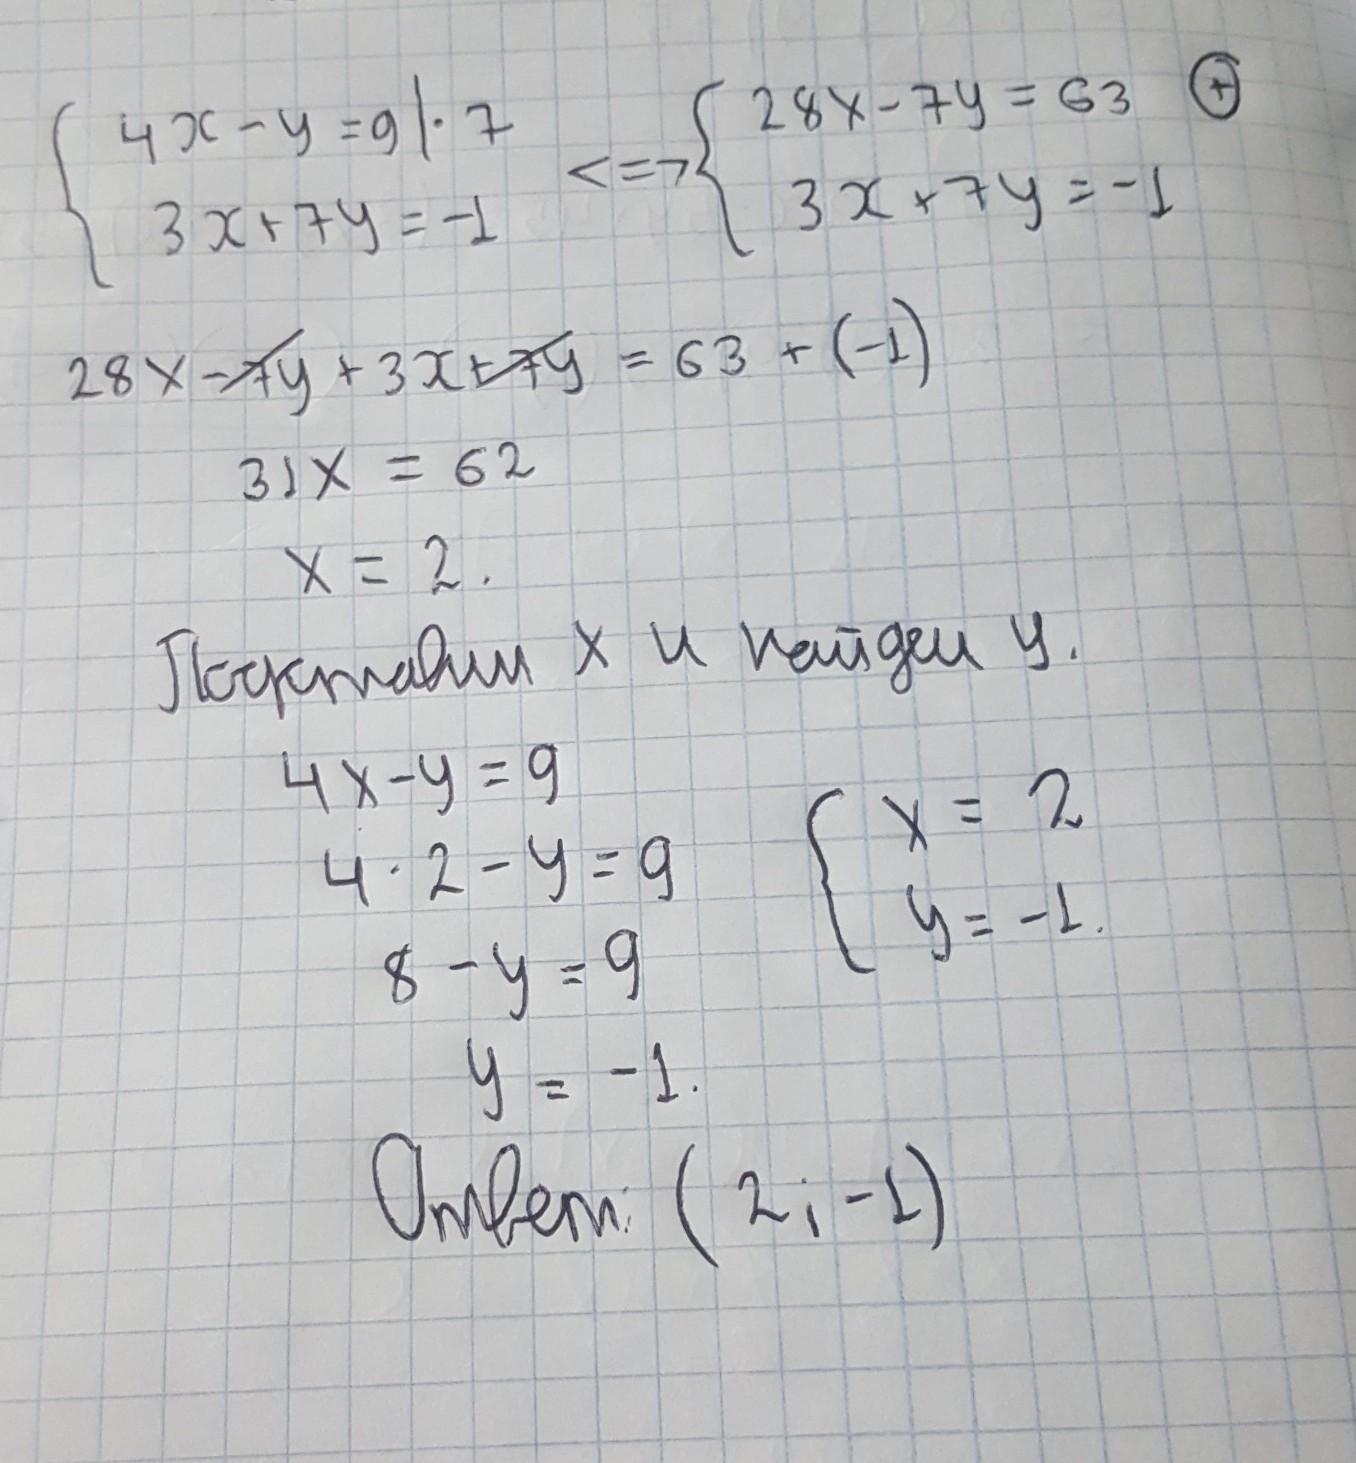 { 4x - y = 9 | · 7 <=> { 28x - 7y = 63 ⊕
3x + 7y = -1 3x + 7y = -1
28x - 7y + 3x + 7y = 63 + (-1)
31x = 62
x = 2.
Подставим x и найдем y.
4x - y = 9
4 · 2 - y = 9
8 - y = 9
y = -1.
{ x = 2
y = -1.
Ответ: (2; -1)